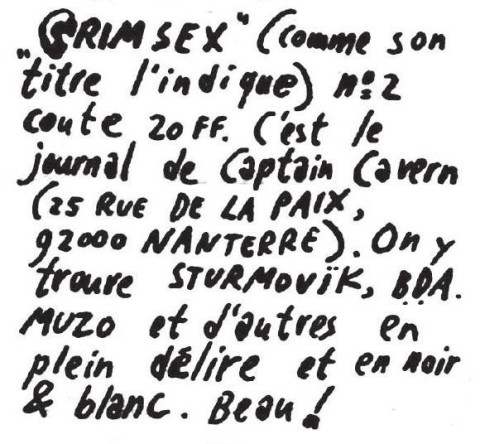 „CRIMSEX" (comme son
titre l'indique) nº2
coute 20 FF. C'est le
journal de Captain Cavern
(25 RUE DE LA PAIX,
92000 NANTERRE). On y
trouve STURMOVïK, BDA.
MUZO et d'autres en
plein délire et en noir
& blanc. Beau!